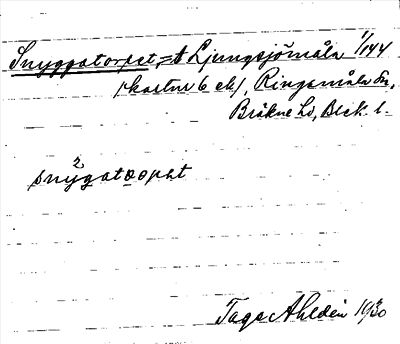 Snyggatorpet, =t Ljungsjömåla 1/144
(kartur 6 ek), Ringamåla sn,
Bräkne hd, Blek. l.
snÿ²gatoopht
Tage Ahldén 1930